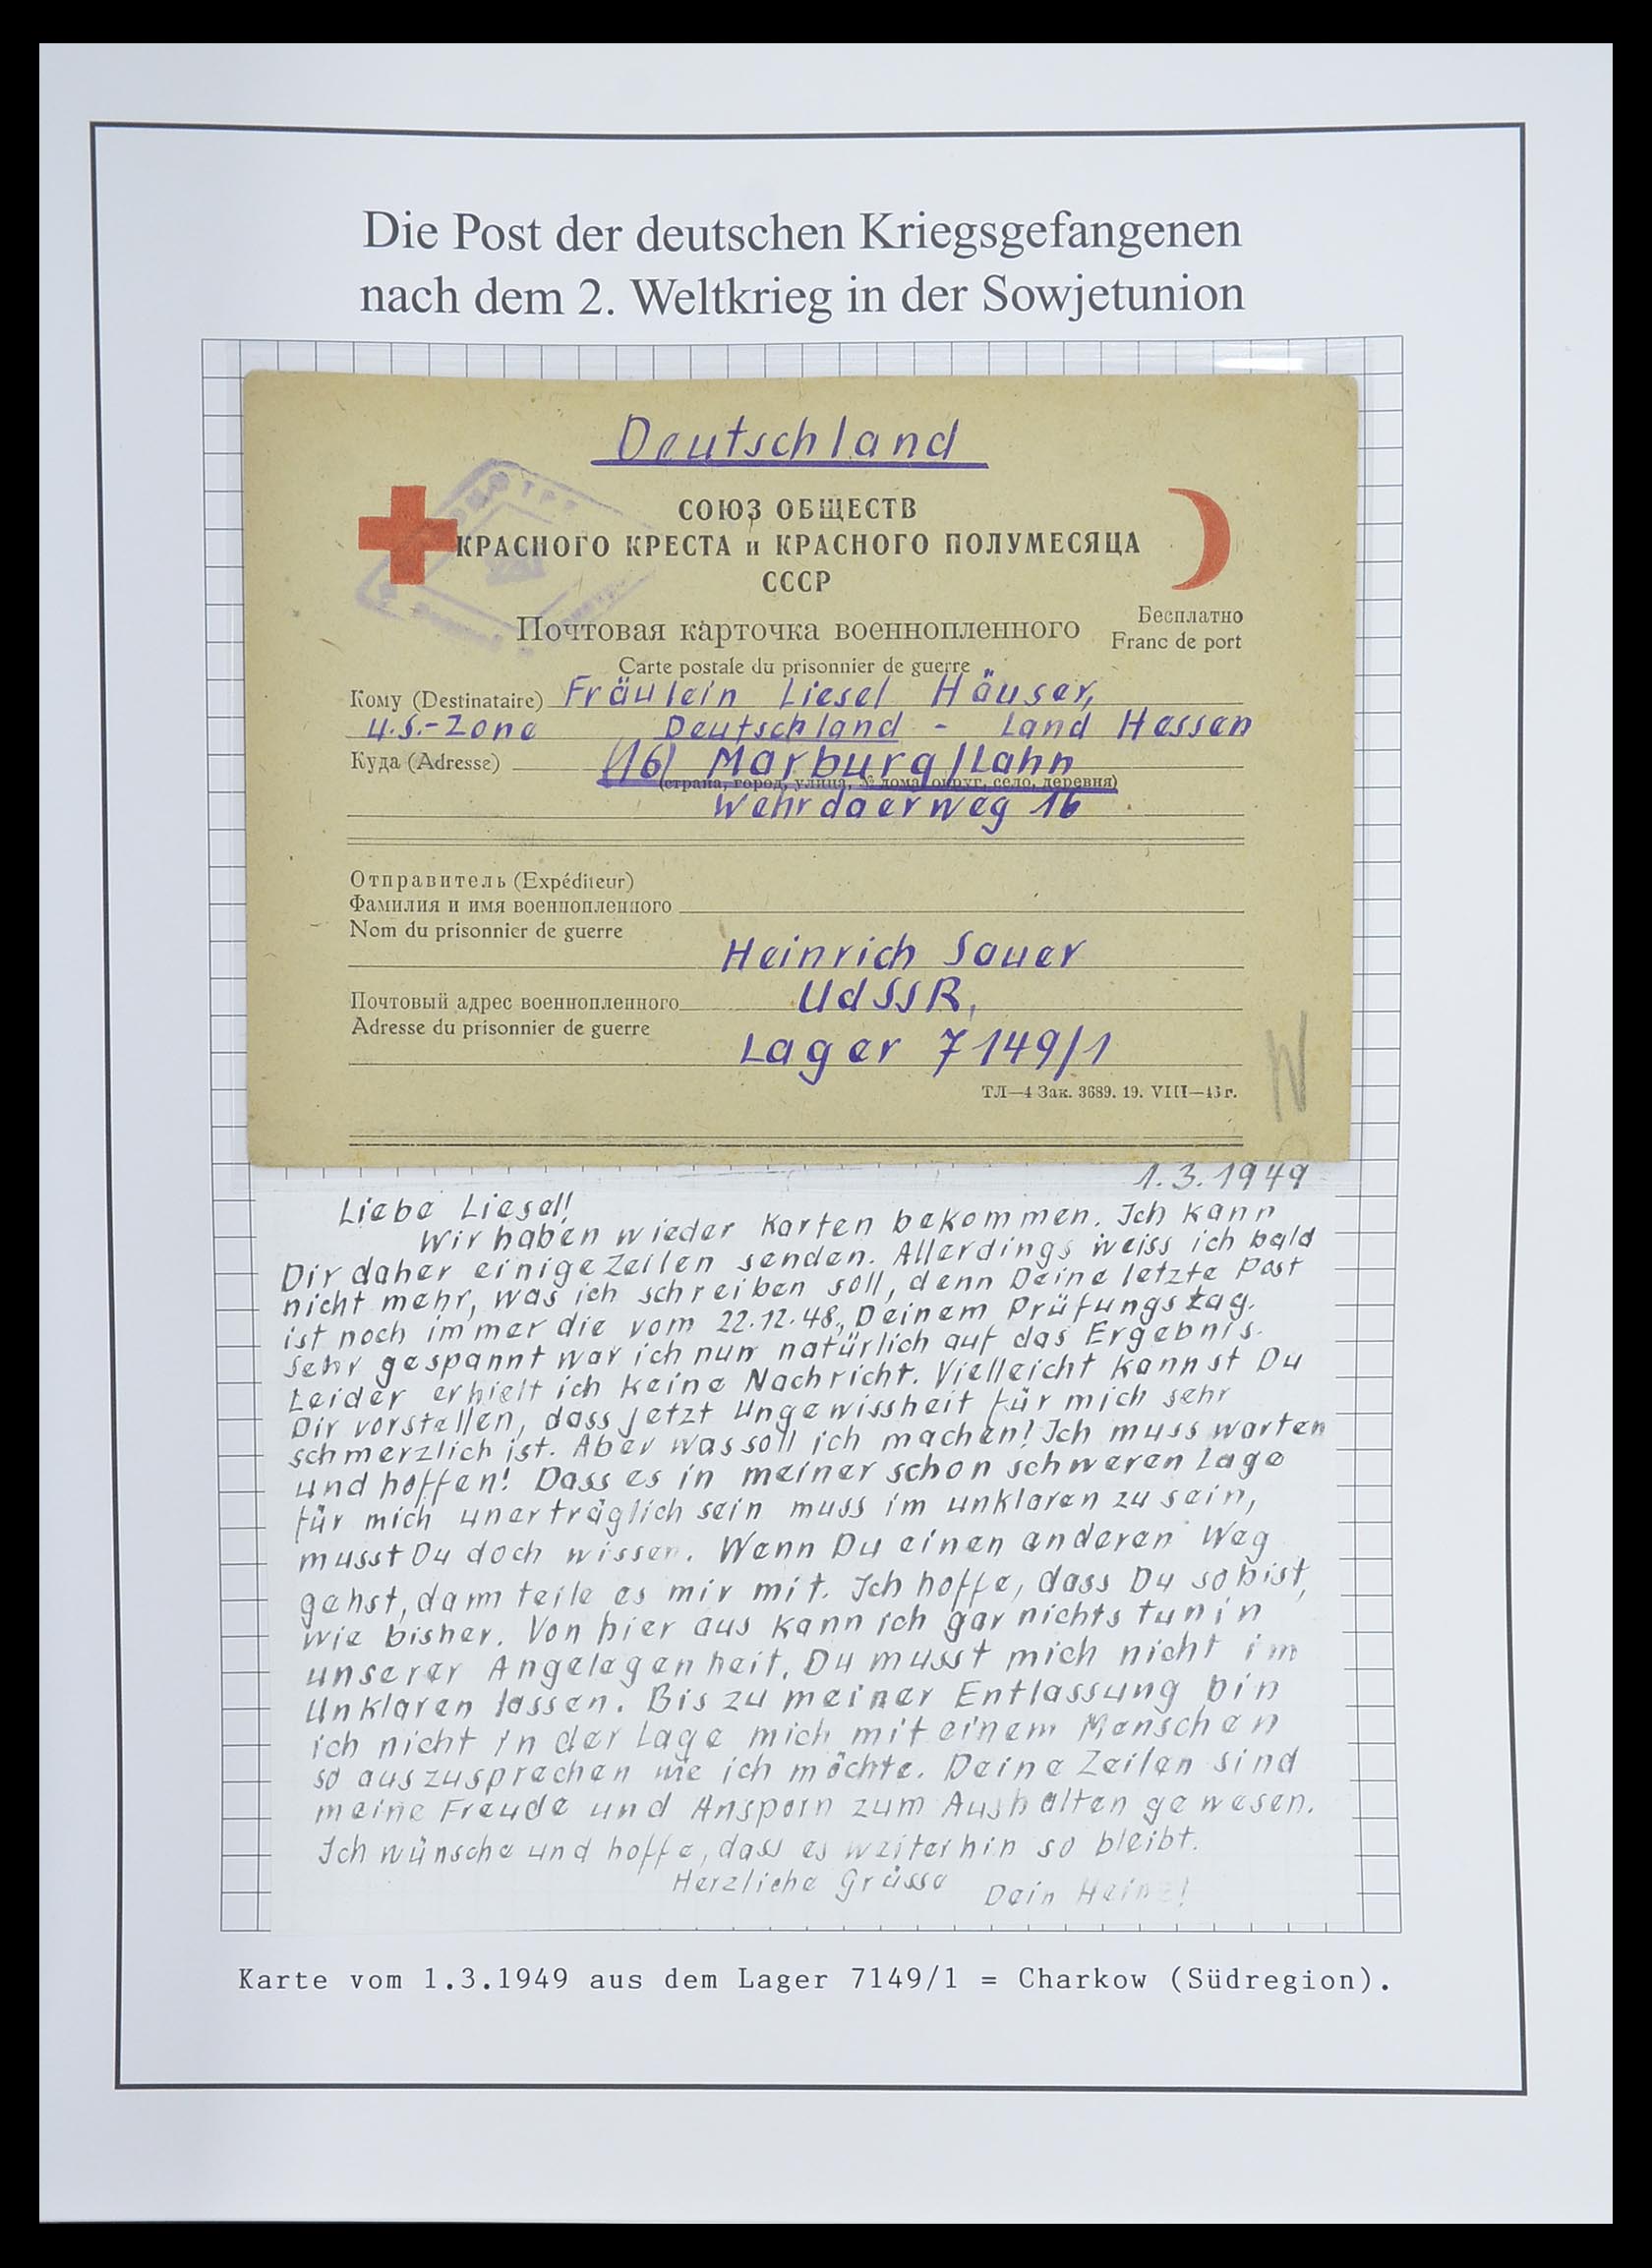 Die Post der deutschen Kriegsgefangenen
nach dem 2. Weltkrieg in der Sowjetunion
Deutschland
СОЮЗ ОБЩЕСТВ
КРАСНОГО КРЕСТА и КРАСНОГО ПОЛУМЕСЯЦА
СССР
Бесплатно
Почтовая карточка военнопленного
Franc de port
Carte postale du prisonnier de guerre
Кому (Destinataire) Fräulein Liesel Häuser,
U.S.-Zone Deutschland - Land Hessen
Куда (Adresse) (16) Marburg/Lahn
(страна, город, улица, № дома, округ, село, деревня)
Wehrdaerweg 16
Отправитель (Expéditeur)
Фамилия и имя военнопленного
Nom du prisonnier de guerre
Heinrich Sauer
Почтовый адрес военнопленного UdSSR,
Adresse du prisonnier de guerre
Lager 7149/1
ТЛ—4 Зак. 3689. 19. VIII—
N
1.3.1949
Liebe Liesel!
Wir haben wieder Karten bekommen. Ich kann
Dir daher einige Zeilen senden. Allerdings weiss ich bald
nicht mehr, was ich schreiben soll, denn Deine letzte Post
ist noch immer die vom 22.12.48., Deinem Prüfungstag.
Sehr gespannt war ich nun natürlich auf das Ergebnis.
Leider erhielt ich keine Nachricht. Vielleicht kannst Du
Dir vorstellen, dass jetzt Ungewissheit für mich sehr
schmerzlich ist. Aber was soll ich machen! Ich muss warten
und hoffen! Dass es in meiner schon schweren Lage
für mich unerträglich sein muss im unklaren zu sein,
musst Du doch wissen. Wenn Du einen anderen Weg
gehst, dann teile es mir mit. Ich hoffe, dass Du so bist,
wie bisher. Von hier aus kann ich gar nichts tun in
unserer Angelegenheit. Du musst mich nicht im
Unklaren lassen. Bis zu meiner Entlassung bin
ich nicht in der Lage mich mit einem Menschen
so auszusprechen wie ich möchte. Deine Zeilen sind
meine Freude und Ansporn zum Aushalten gewesen.
Ich wünsche und hoffe, dass es weiterhin so bleibt.
Herzliche Grüsse Dein Heinz!
Karte vom 1.3.1949 aus dem Lager 7149/1 = Charkow (Südregion).